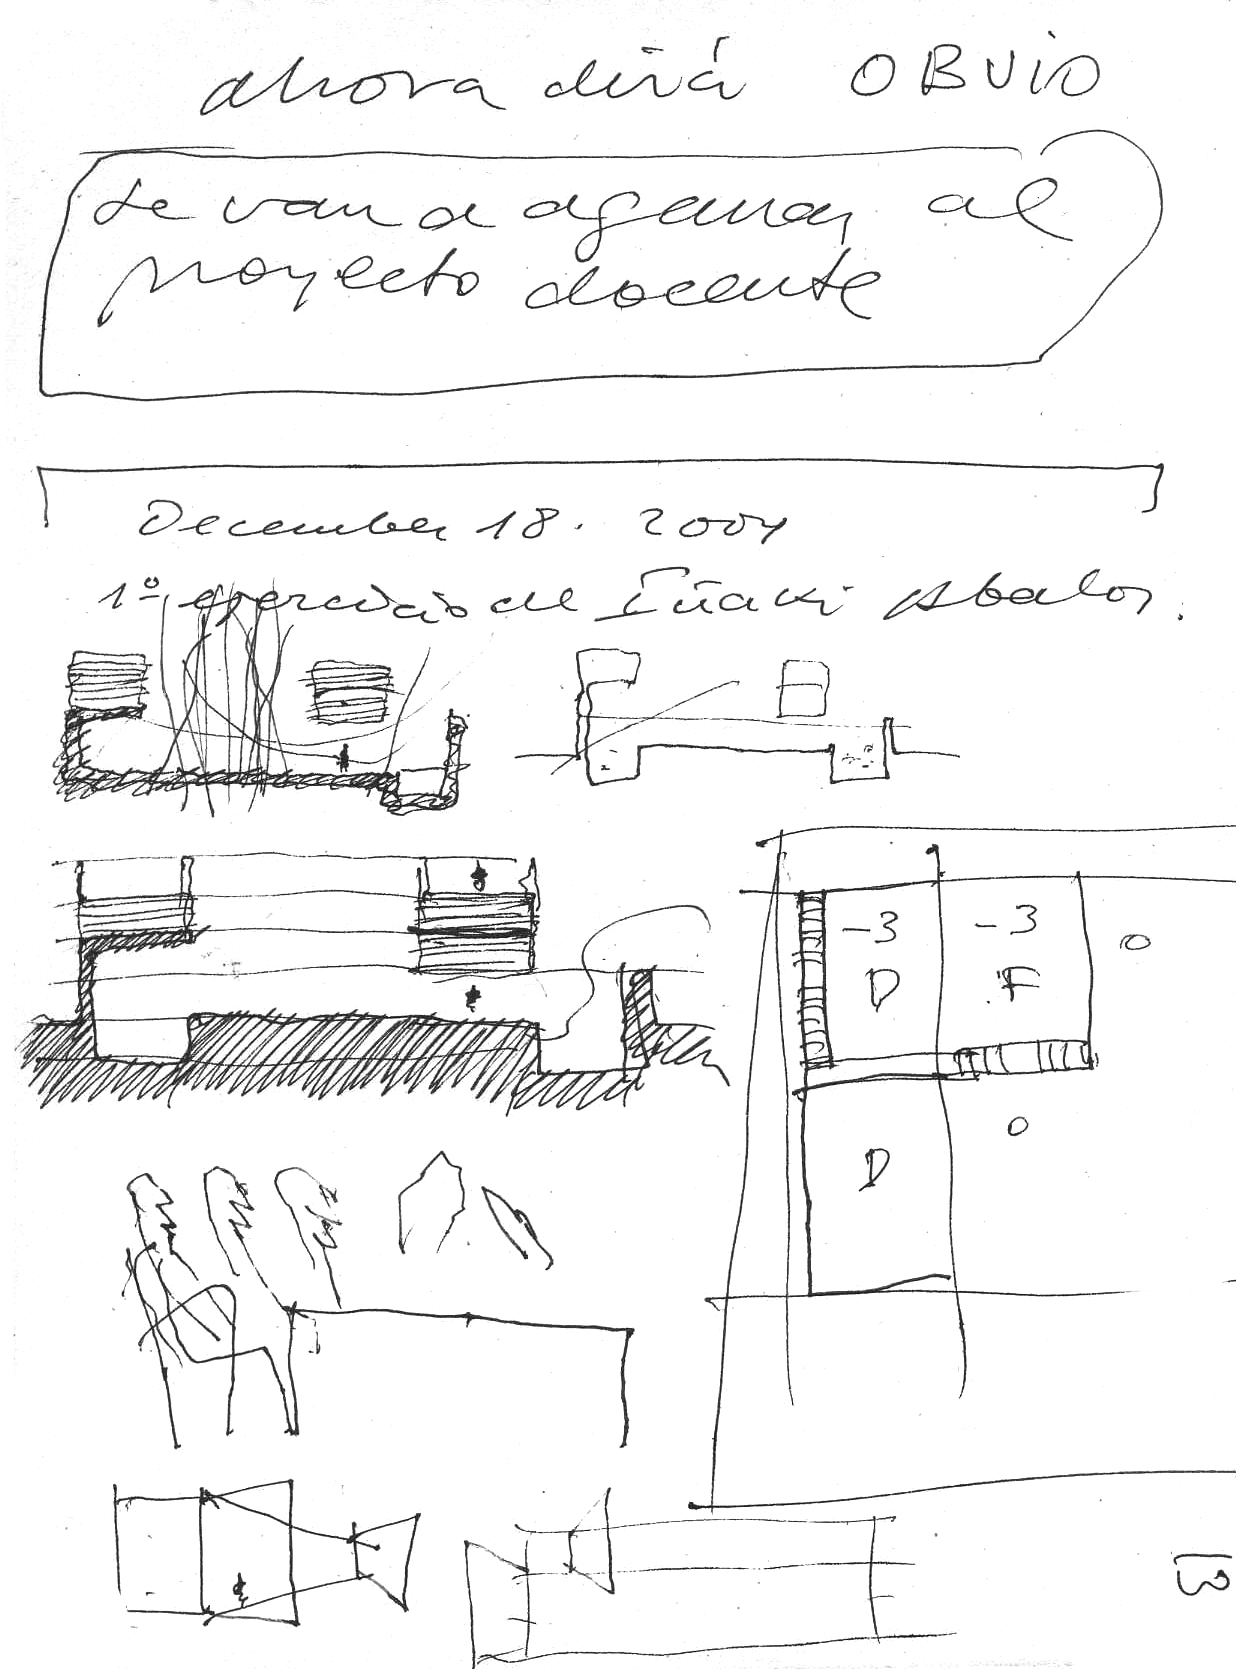 ahora dirá OBVIO
Se van a agarrar al
proyecto docente
December 18. 2004
1º ejercicio de Iñaki Abalos.
-3
-3
D
F
O
O
D
13